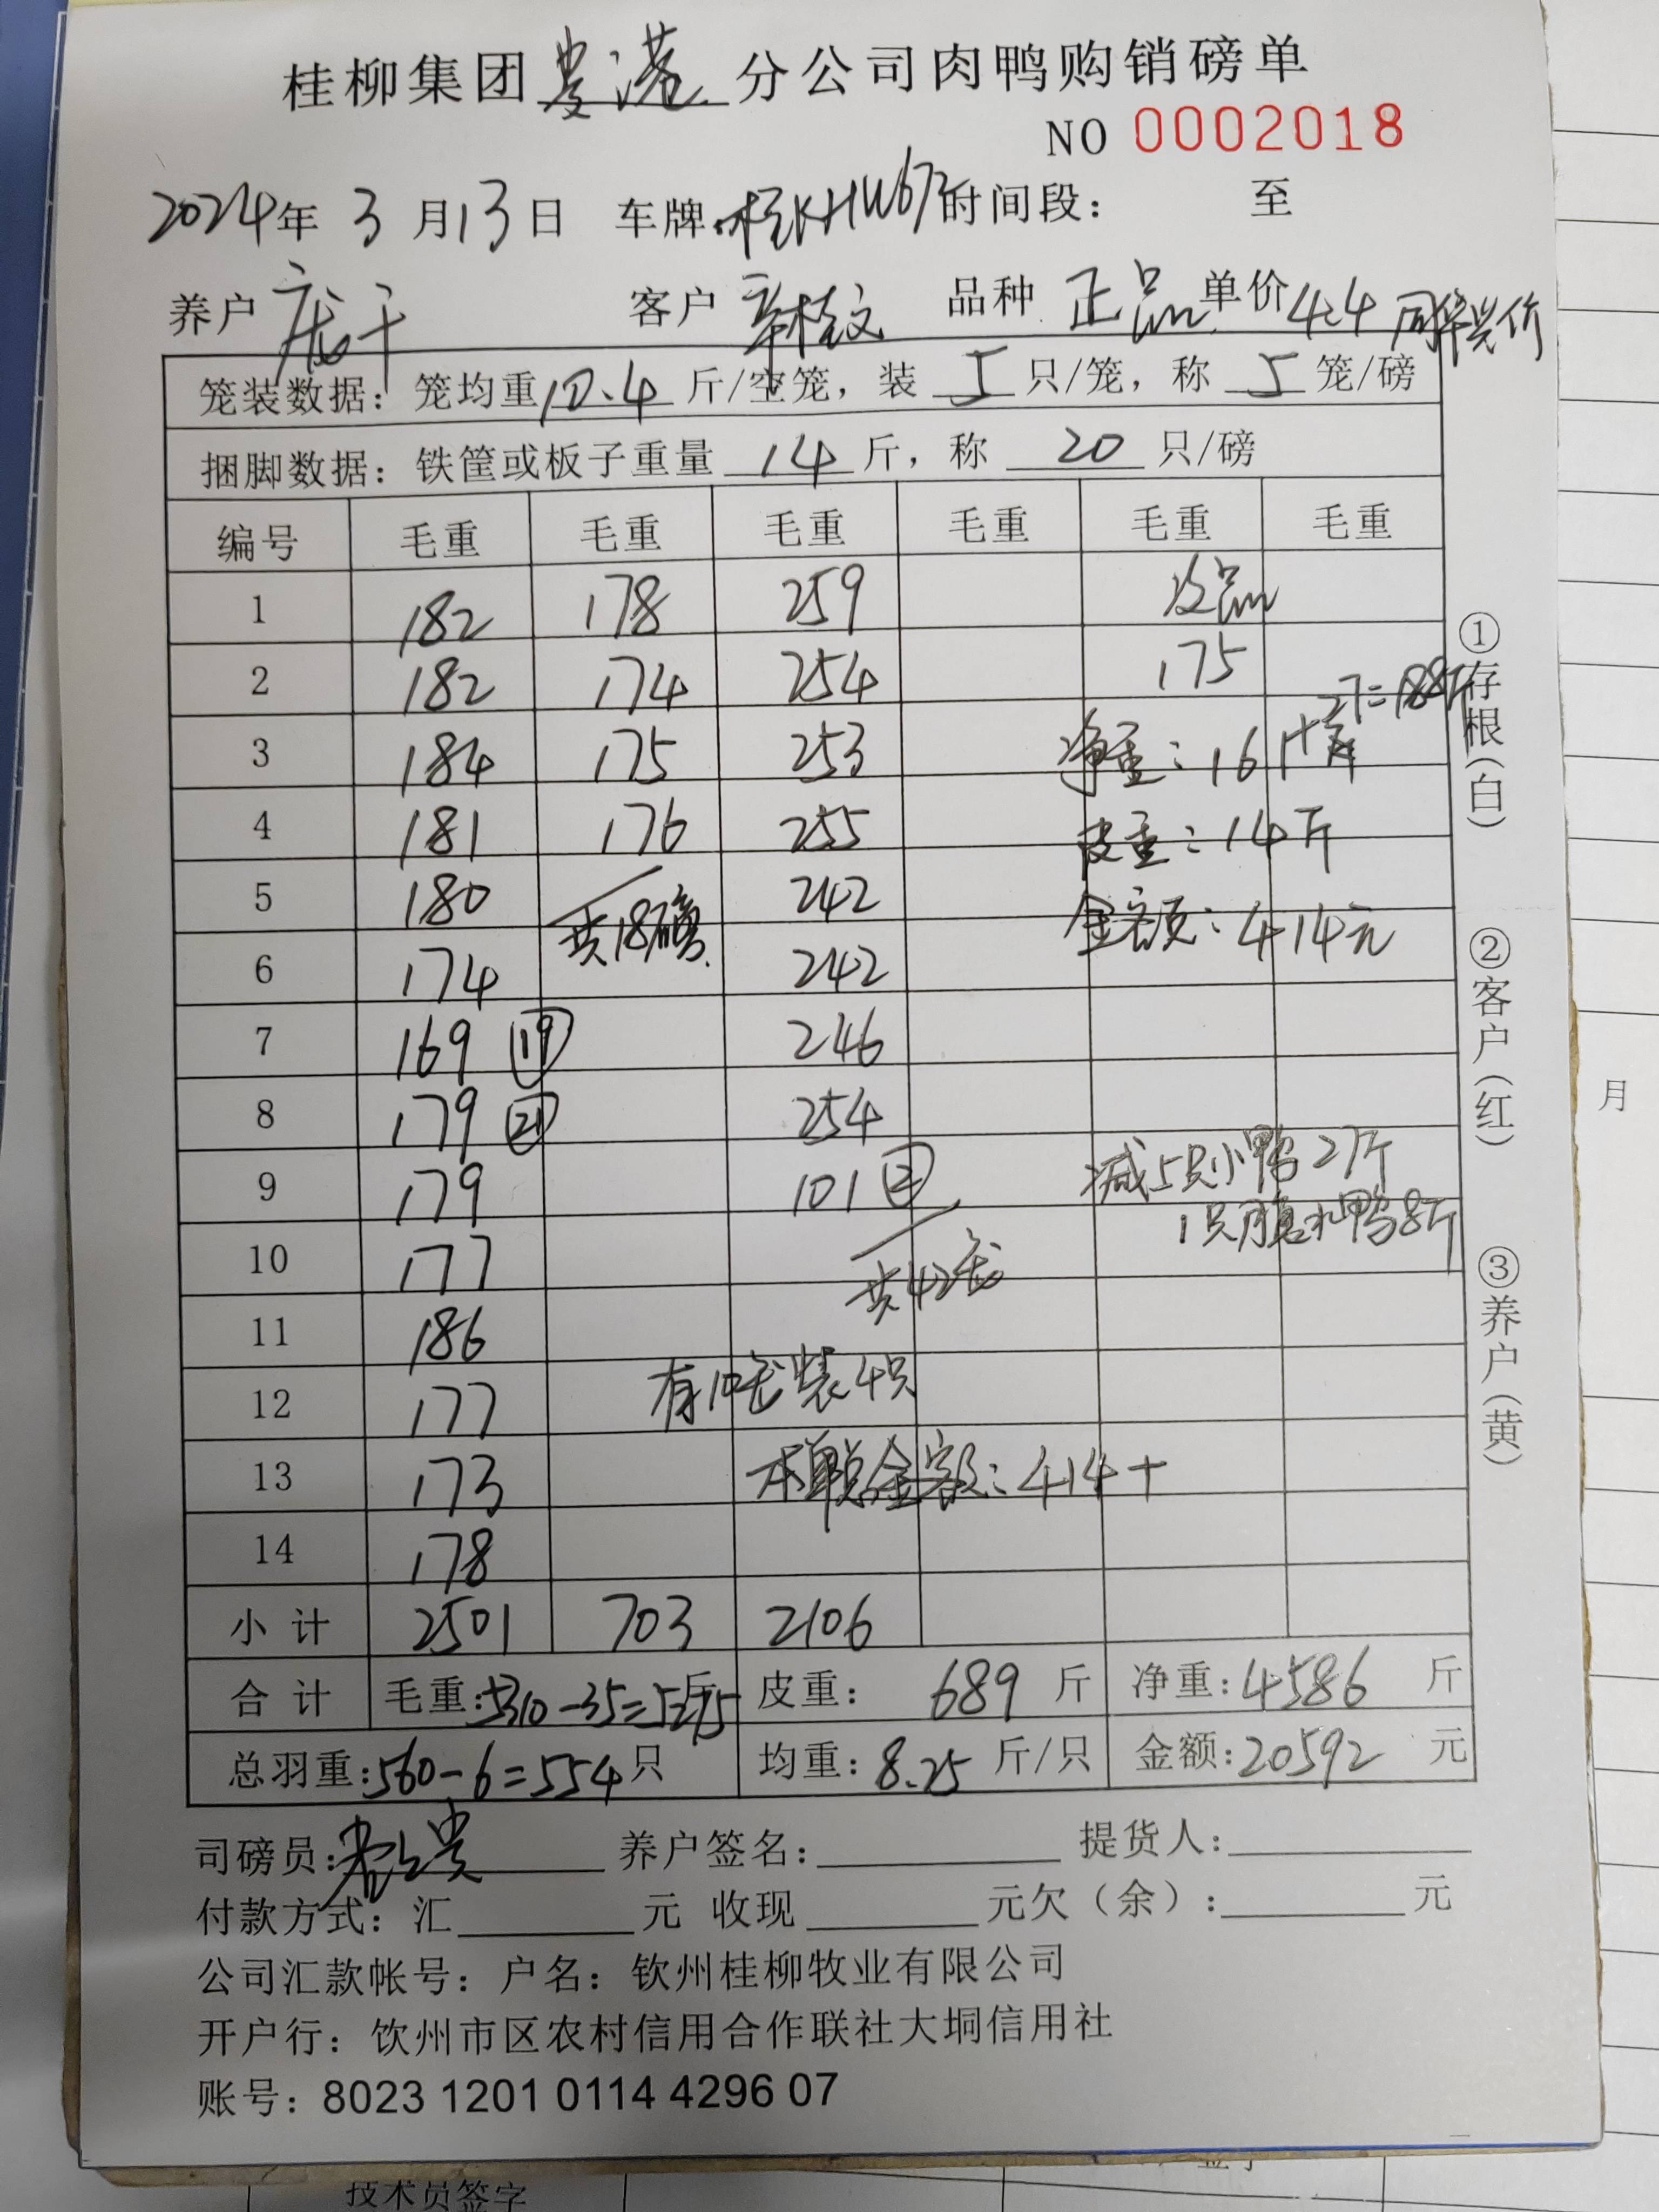 桂柳集团贵港分公司肉鸭购销磅单
NO 0002018
2024年 3 月13日 车牌:桂KHW673 时间段: 至
养户 庞干 客户 辛桂文 品种 正品 单价 4.4 同华兴价
笼装数据：笼均重10.4斤/空笼，装 5 只/笼，称 5 笼/磅
捆脚数据：铁筐或板子重量 14 斤，称 20 只/磅
编号 毛重 毛重 毛重 毛重 毛重 毛重
1 182 178 259 次品
2 182 174 254 175
27=188斤
3 184 175 253 净重：161斤+
4 181 176 255 皮重：14斤
5 180 共18磅. 242 金额：414元
6 174 242
7 169 ⑲ 246
8 179 ㉑ 254
9 179 101 ② 减5只小鸭27斤
1只腹水鸭8斤
10 177 共42笼
11 186
12 177 有10笼装4只
13 173 本单总金额：414+
14 178
小计 2501 703 2106
合计 毛重:5310-35=5275斤 皮重： 689 斤 净重:4586 斤
总羽重:560-6=554只 均重:8.25 斤/只 金额:20592 元
司磅员: 养户签名: 提货人:
付款方式：汇 元 收现 元欠（余）: 元
公司汇款帐号：户名：钦州桂柳牧业有限公司
开户行：饮州市区农村信用合作联社大垌信用社
账号：8023 1201 0114 4296 07
①存根(白)
②客户(红)
③养户(黄)
月
技术员签字